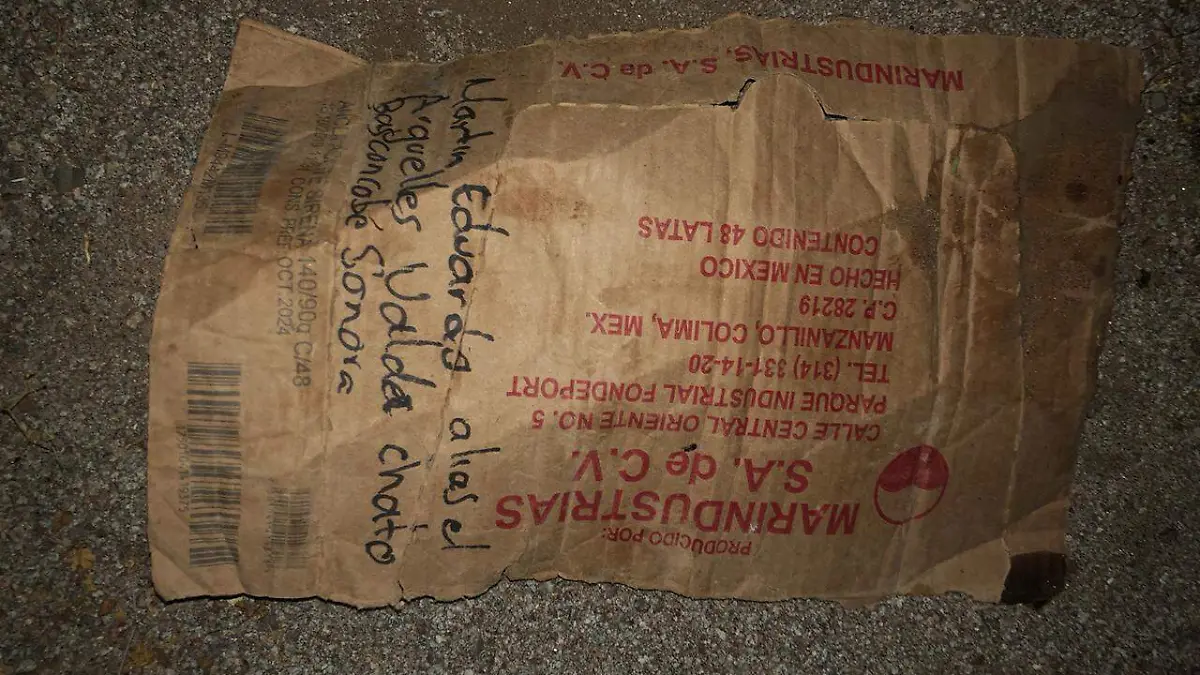 Martin Eduardo alias el
Arguelles Udlda chato
Bascorcobé Sonora
MARINDUSTRIAS, S.A. de C.V.
PRODUCIDO POR:
MARINDUSTRIAS
S.A. de C.V.
CALLE CENTRAL ORIENTE NO. 5
PARQUE INDUSTRIAL FONDEPORT
TEL. (314) 331-14-20
MANZANILLO, COLIMA, MEX.
C.P. 28219
HECHO EN MEXICO
CONTENIDO 48 LATAS
140/90g C/48
CONS PREF OCT 2024